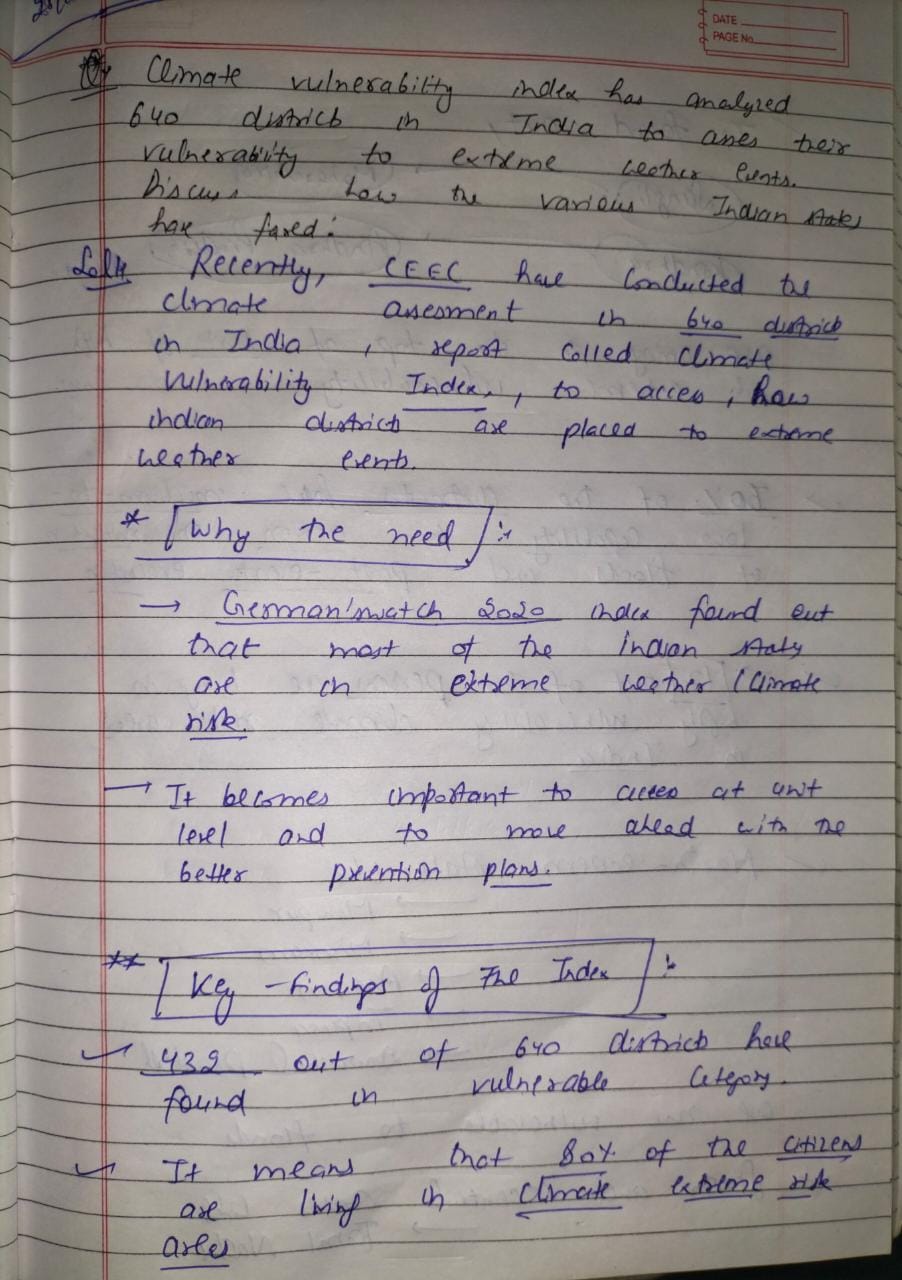 DATE
PAGE No.
Q. Climate vulnerability index has analyzed
640 district in India to asses their
vulnerability to extreme weather events.
Discuss how the various Indian states
have fared:
Soln. Recently, CEEC have conducted the
climate assesment in 640 district
in India , report called climate
Vulnerability Index, , to access , how
indian district are placed to extreme
weather events.
* Why the need :-
→ German'swatch 2020 index found out
that most of the indian states
are in extreme weather / climate
risk.
→ It becomes important to access at unit
level and to move ahead with the
better prevention plans.
** Key - findings of The Index :-
✓ 439 out of 640 district have
found in vulnerable category.
✓ It means that 80% of the citizens
are living in climate extreme risk
areas